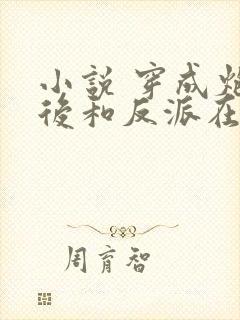 小說 穿成炮
後和反派在
周育智